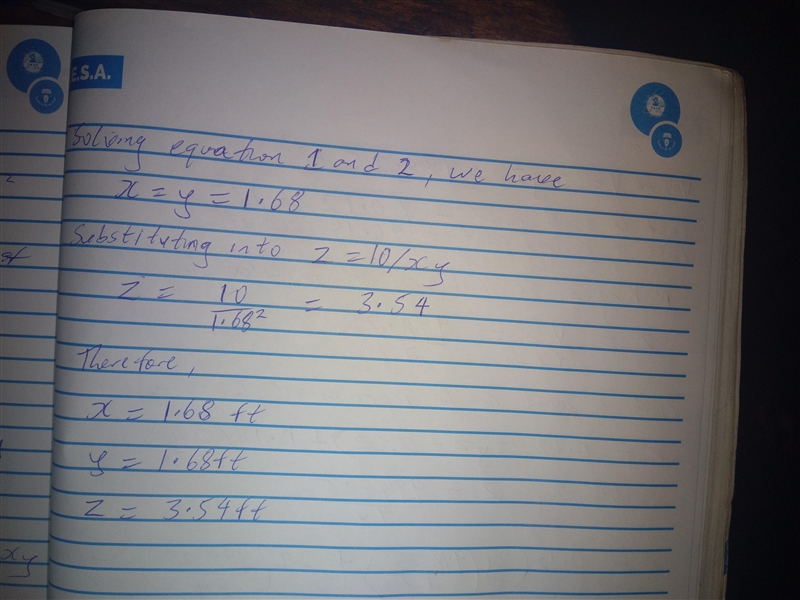 E.S.A.
Solving equation 1 and 2, we have
x = y = 1.68
Substituting into z = 10/xy
z = 10/1.68² = 3.54
Therefore,
x = 1.68 ft
y = 1.68ft
z = 3.54ft
xy